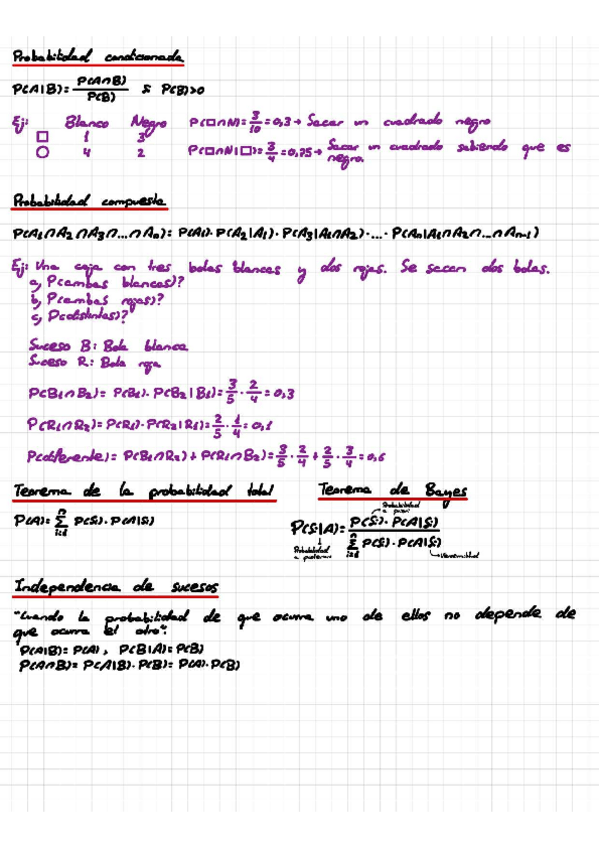 Probabilidad condicionada
P(A|B)= P(A∩B)/P(B) si P(B)>0
Ej: Blanco Negro P(□∩N)= 3/10 = 0,3 → Sacar un cuadrado negro
□ 1 3
○ 4 2 P(□∩N|□)= 3/4 = 0,75 → Sacar un cuadrado sabiendo que es
negro.
Probabilidad compuesta
P(A₁∩A₂∩A₃∩...∩Aₙ)= P(A₁)·P(A₂|A₁)·P(A₃|A₁∩A₂)·...·P(Aₙ|A₁∩A₂∩...∩Aₙ₋₁)
Ej: Una caja con tres bolas blancas y dos rojas. Se sacan dos bolas.
a, P(ambas blancas)?
b, P(ambas rojas)?
c, P(distintas)?
Suceso B: Bola blanca
Suceso R: Bola roja
P(B₁∩B₂)= P(B₁)·P(B₂|B₁)= 3/5 · 2/4 = 0,3
P(R₁∩R₂)= P(R₁)·P(R₂|R₁)= 2/5 · 1/4 = 0,1
P(diferente)= P(B₁∩R₂)+P(R₁∩B₂)= 3/5 · 2/4 + 2/5 · 3/4 = 0,6
Teorema de la probabilidad total
P(A)= n∑i=1 P(Sᵢ)·P(A|Sᵢ)
Teorema de Bayes
Probabilidad
a priori
P(Sᵢ|A)= P(Sᵢ)·P(A|Sᵢ) / n∑i=1 P(Sᵢ)·P(A|Sᵢ)
Probabilidad
a posteriori
Verosimilitud
Independencia de sucesos
"Cuando la probabilidad de que ocurra uno de ellos no depende de
que ocurra el otro".
P(A|B)= P(A), P(B|A)= P(B)
P(A∩B)= P(A|B)·P(B)= P(A)·P(B)